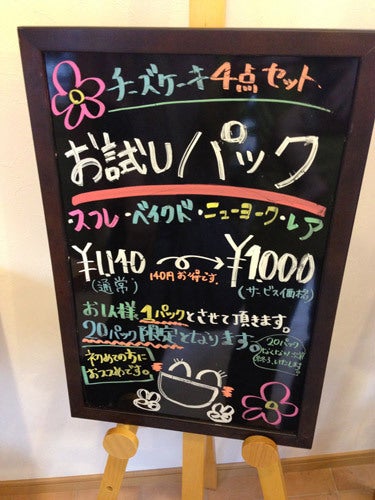 チーズケーキ4点セット
お試しパック
スフレ・ベイクド・ニューヨーク・レア
¥1,140
(通常)
140円お得です。
¥1000
(サービス価格)
お1人様1パックとさせて頂きます。
20パック限定となります。
20パック
なくなり次第
終了いたします
初めての方に
おススメです。